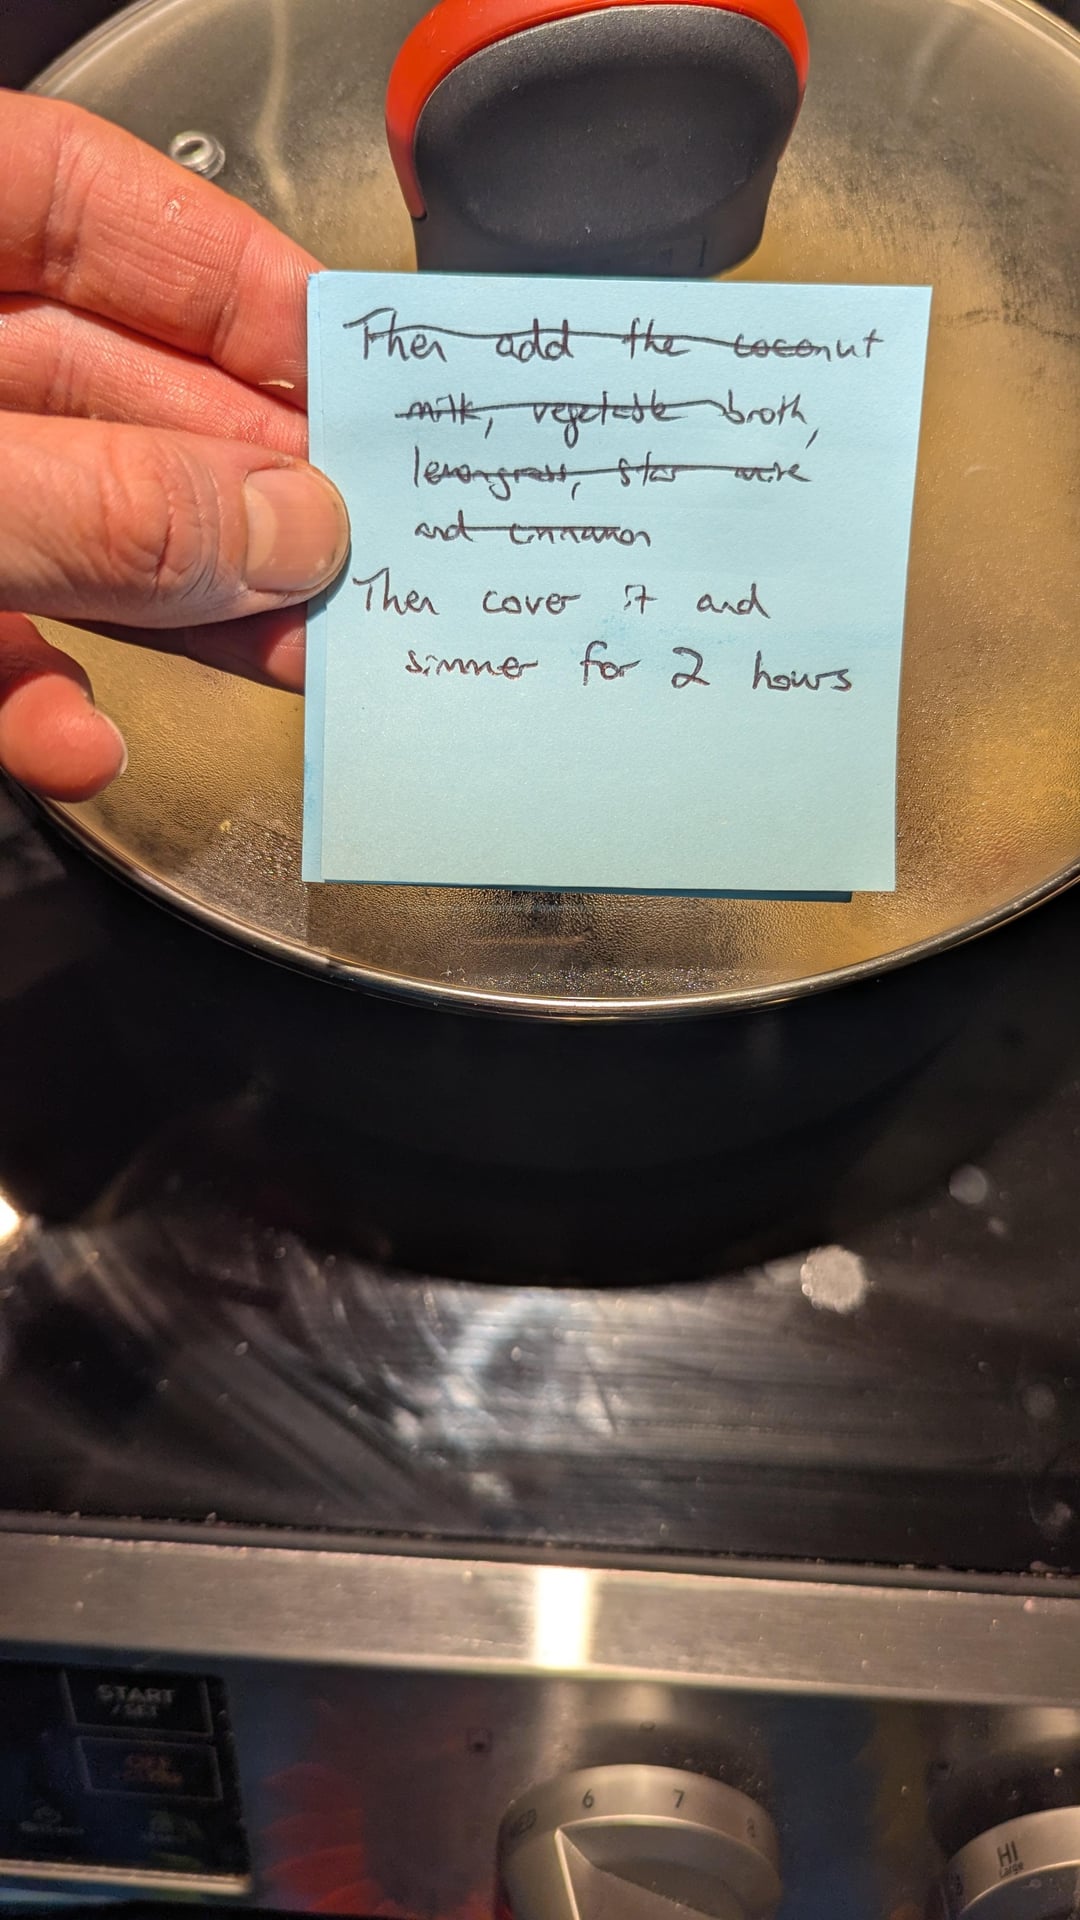 Then add the coconut
milk, vegetable broth,
lemongrass, star anise
and cinnamon
Then cover it and
simmer for 2 hours
START
/SET
OFF
MED 6 7 8
HI
Large